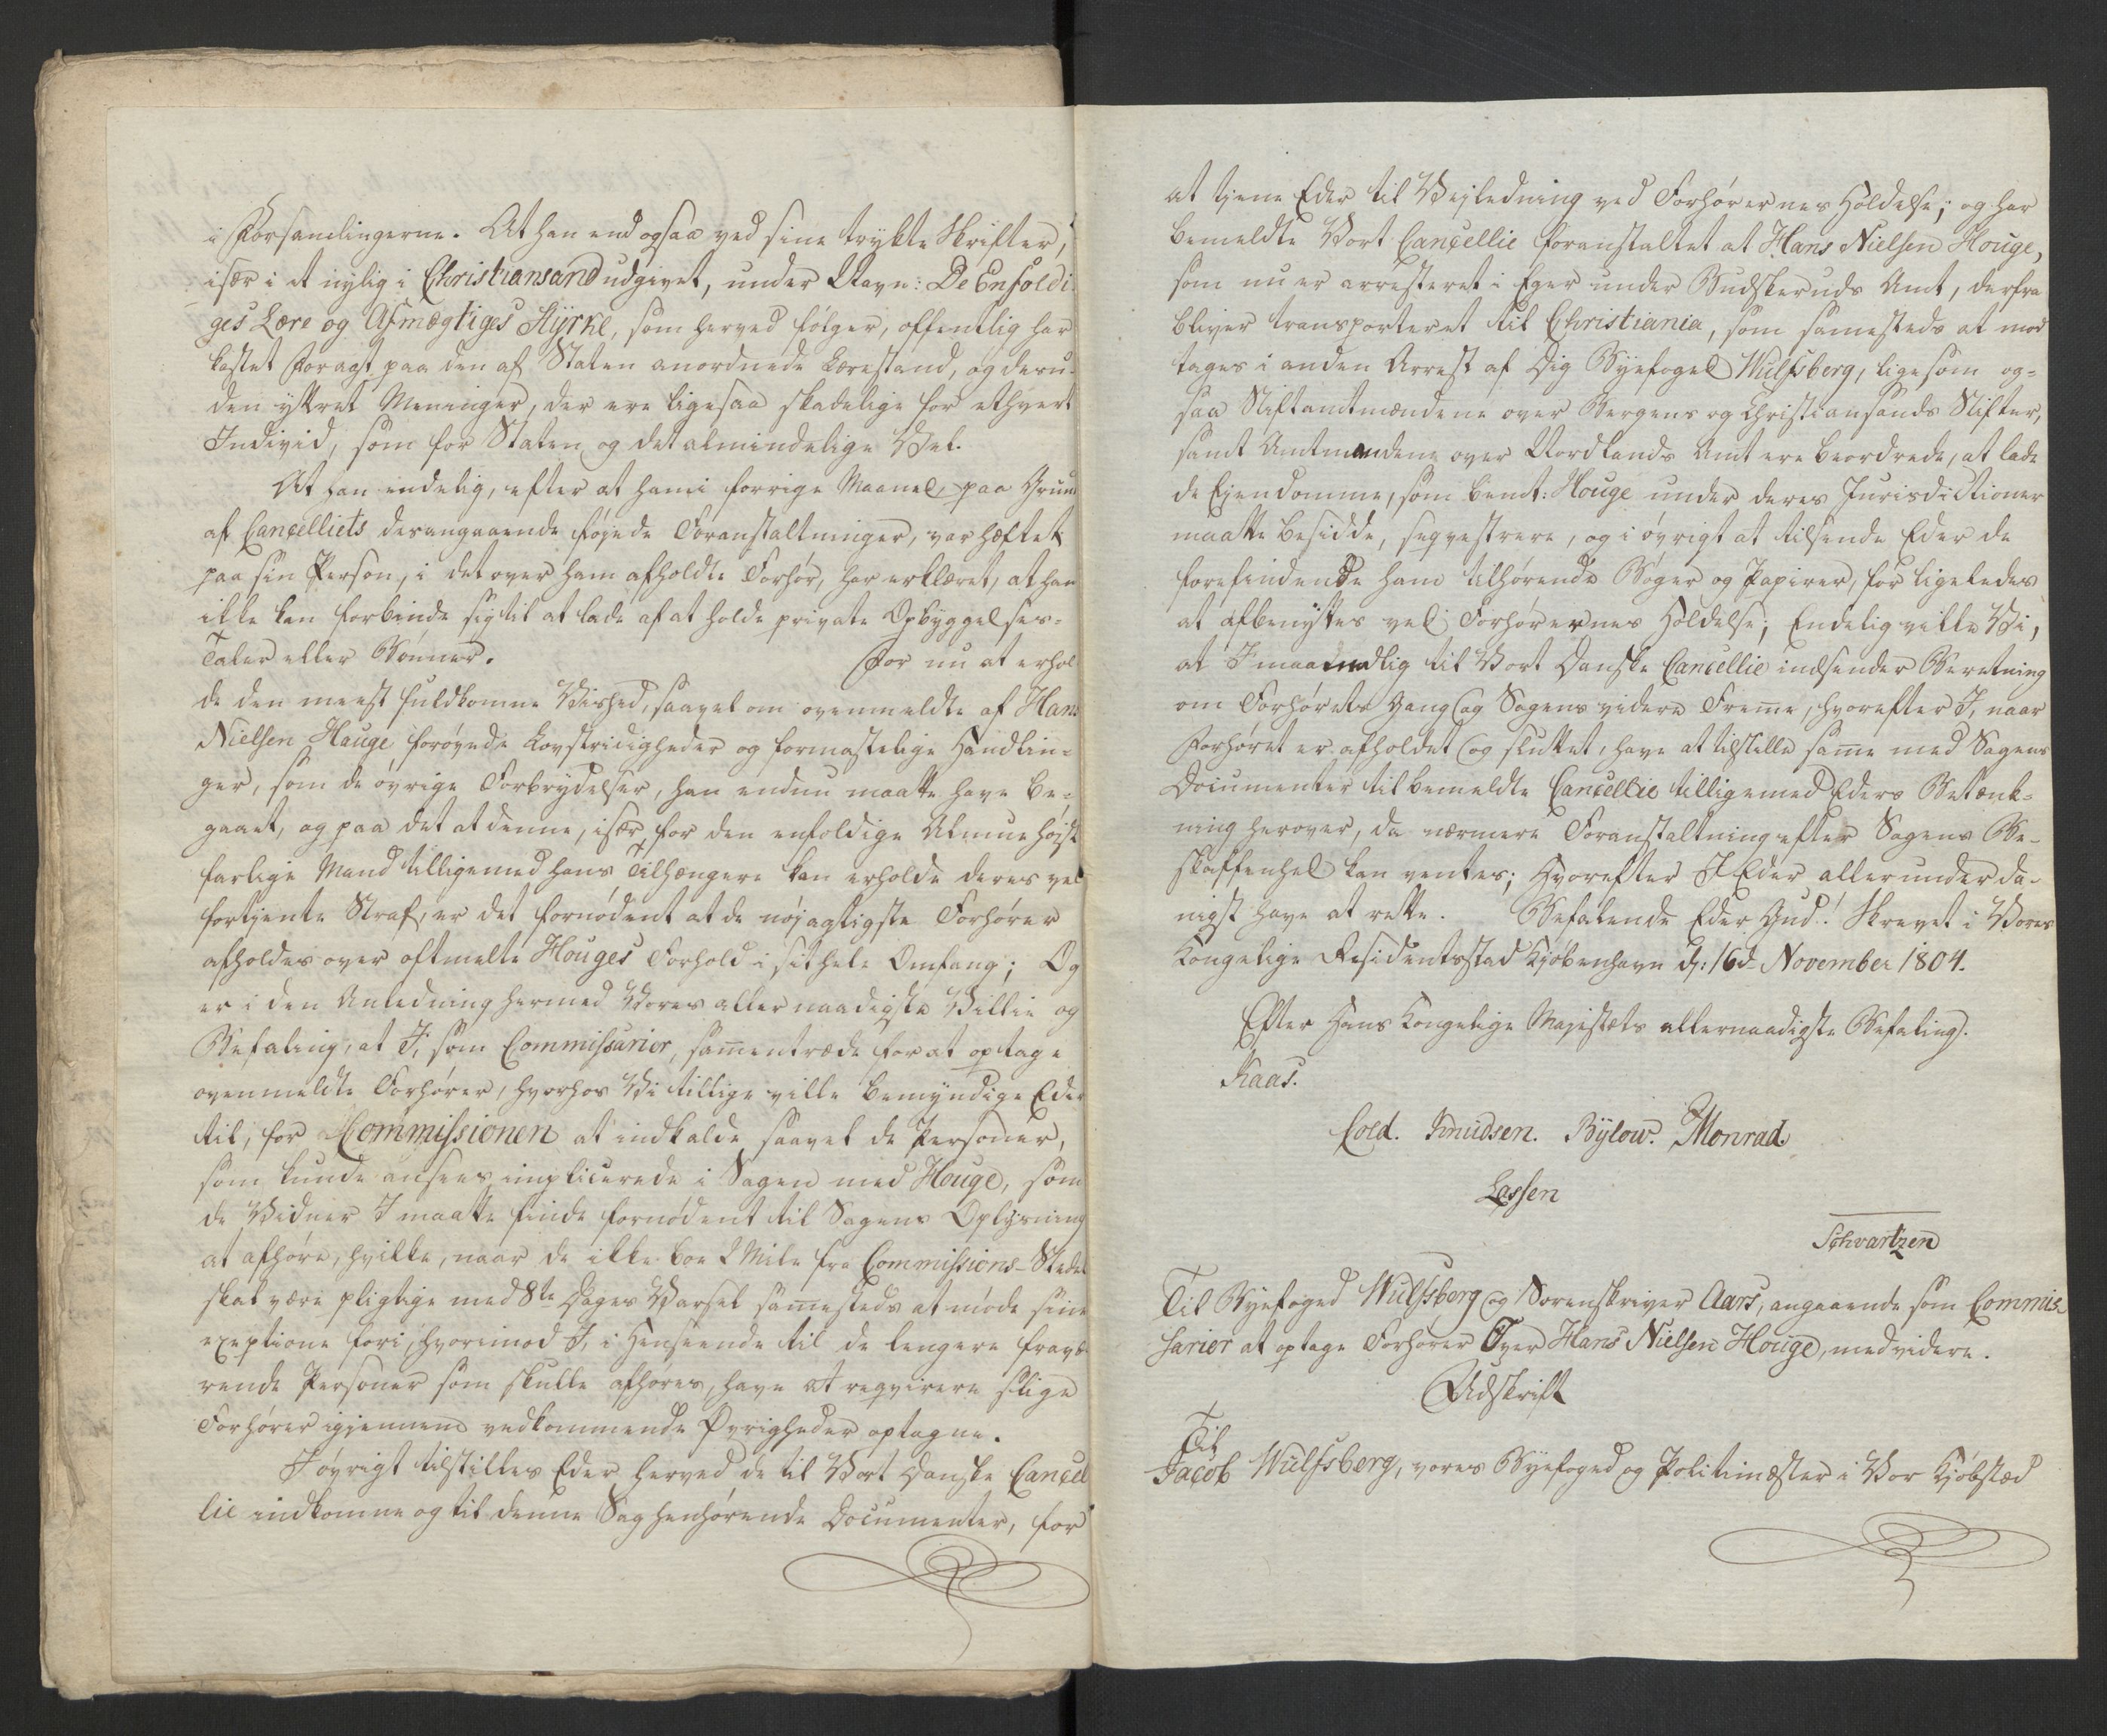 i Forsamlingerne. At han endogsaa ved sine trykte Skrifter,
især i et nylig i Christiansand udgivet, under Navn: De Enfoldi-
ges Lære og Afmægtiges Styrke, som herved følger, offentlig har
kastet Foragt paa den af Staten anordnede Lærestand, og deru-
den yttret Meninger, der ere ligesaa skadelige for ethvert
Individ, som for Staten og det almindelige Vel.
At han endelig, efter at han i forrige Maaned, paa Grund
af Cancelliets desangaaende føjede Foranstaltninger, var hæftet
paa sin Person, i det over ham afholdte Forhør, har erklæret, at han
ikke kan forbinde sig til at lade af at holde private Opbyggelses-
Taler eller Bønner. For nu at erhol-
de den meest fuldkomne Vished, saavel om ovenmeldte af Hans
Nielsen Hauge forøvede Lovstridigheder og formastelige Handlin-
ger, som de øvrige Forbrydelser, han endnu maatte have be-
gaaet, og paa det at denne, især for den enfoldige Almue højst
farlige Mand tilligemed hans Tilhængere kan erholde deres vel
fortjente Straf, er det fornødent at de nøjagtigste Forhører
afholdes over oftmelte Houges Forhold i sit hele Omfang; Og
er i den Anledning hermed Vores allernaadigste Villie og
Befaling, at I, som Commissarier, samentræde for at optage
ovenmeldte Forhører, hvorhos Vi tillige ville bemyndige Eder
til, for Commissionen at indkalde saavel de Personer,
som kunde ansees implicerede i Sagen med Houge, som
de Vidner I maatte finde fornødent til Sagens Oplysning
at afhøre, hvilke, naar de ikke boe 2 Mile fra Commissions-Stedet
skal være pligtige med 8te Dages Varsel samesteds at møde sine
exeptione fori, hvorimod I, i Henseende til de længere fravæ-
rende Personer som skulle afhøres, have at reqvirere slige
Forhører igjennem vedkommende Øvrigheder optagne.
I øvrigt tilstilles Eder herved de til Vort Danske Cancel-
lie indkomne og til denne Sag henhørende Documenter, for
at tjene Eder til Vejledning ved Forhørernes Holdelse; og har
bemeldte Vort Cancellie foranstaltet at Hans Nielsen Houge,
som nu er arresteret i Eger under Budskeruds Amt, derfra
bliver transporteret til Christiania, som samesteds at mod
tages i anden Arrest af Dig Byefoged Wulfsberg, ligesom og-
saa Stiftamtmændene over Bergens og Christiansands Stifter,
samt Amtmandene over Nordlands Amt ere beordrede, at lade
de Ejendomme, som bemt: Houge under deres Jurisdictioner
maatte besidde, seqvestrere, og i øvrigt at tilsende Eder de
forefindende ham tilhørende Bøger og Papirer, for ligeledes
at afbenyttes ved Forhørernes Holdelse; Endelig ville Vi,
at I maanedlig til Vort Danske Cancellie indsender Beretning
om Forhørets Gang og Sagens videre Freme, hvorefter I, naar
Forhøret er afholdet og sluttet, have at tilstille same med Sagens
Documenter til bemeldte Cancellie tilligemed Eders Betænk-
ning herover, da nærmere Foranstaltning efter Sagens Be-
skaffenhed kan ventes; Hvorefter I Eder allerunderda-
nigst have at rette. Befalende Eder Gud! Skrevet i Vores
Kongelige Residentsstad Kjøbenhavn d: 16d November 1804.
Efter Hans Kongelige Majestæts allernaadigste Befaling.
Kaas.
Cold. Knudsen. Bylow. Monrad.
Lassen
Schvartzen
Til Byefoged Wulfsberg og Sorenskriver Aars, angaaende som Commis-
sarier at optage Forhører over Hans Nielsen Houge, med videre.
Udskrift
Til
Jacob Wulfsberg, vores Byefoged og Politimæster i Vor Kjøbstæd